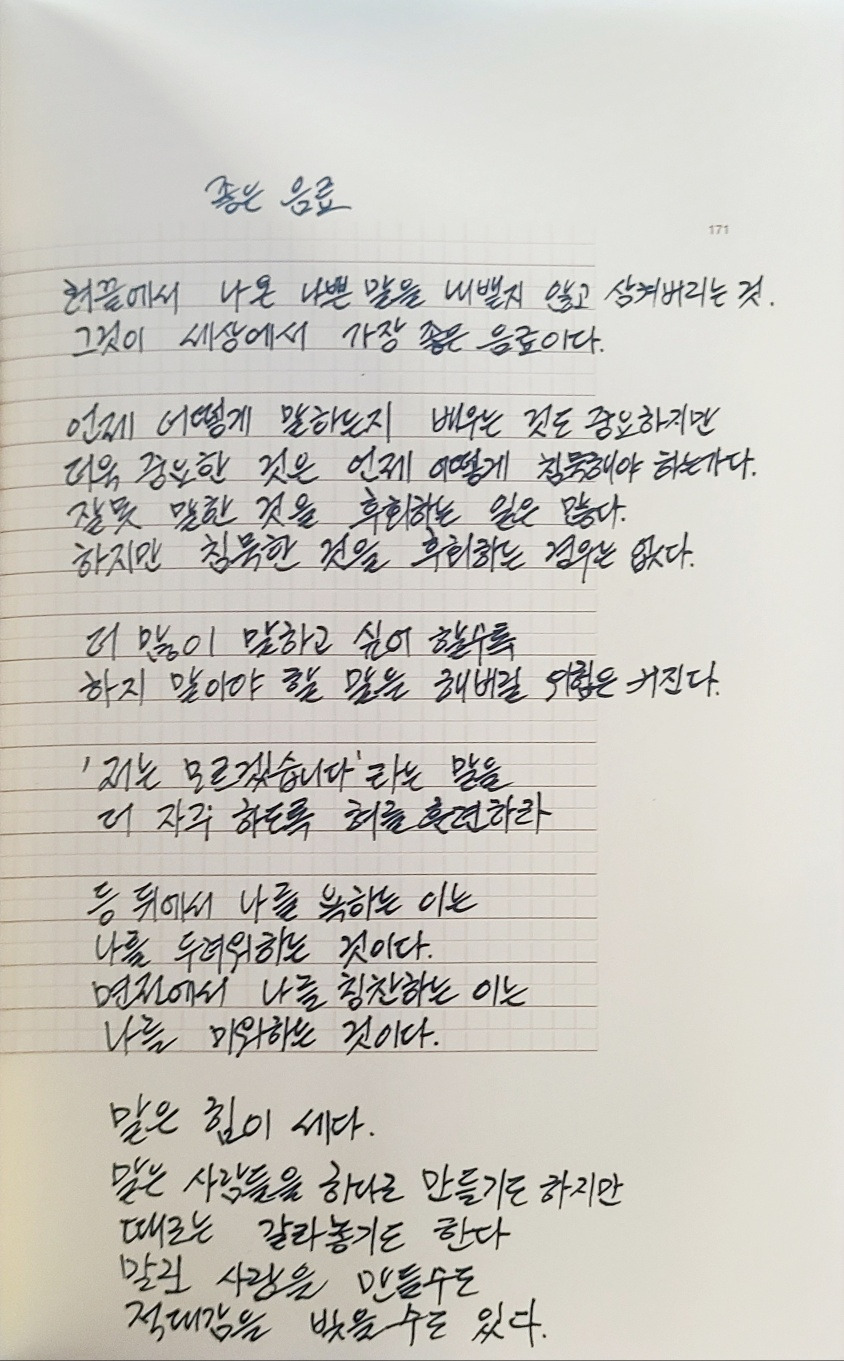 좋은 음료
171
혀끝에서 나온 나쁜 말을 내뱉지 않고 삼켜버리는 것.
그것이 세상에서 가장 좋은 음료이다.
언제 어떻게 말하는지 배우는 것도 중요하지만
더욱 중요한 것은 언제 어떻게 침묵해야 하는가다.
잘못 말한 것을 후회하는 일은 많다.
하지만 침묵한 것을 후회하는 경우는 없다.
더 많이 말하고 싶어 할수록
하지 말아야 할 말을 해버릴 위험은 커진다.
'저는 모르겠습니다'라는 말을
더 자주 하도록 혀를 훈련하라
등 뒤에서 나를 욕하는 이는
나를 두려워하는 것이다.
면전에서 나를 칭찬하는 이는
나를 미워하는 것이다.
말은 힘이 세다.
말은 사람들을 하나로 만들기도 하지만
때로는 갈라놓기도 한다
말로 사랑을 만들수도
적대감을 빚을 수도 있다.